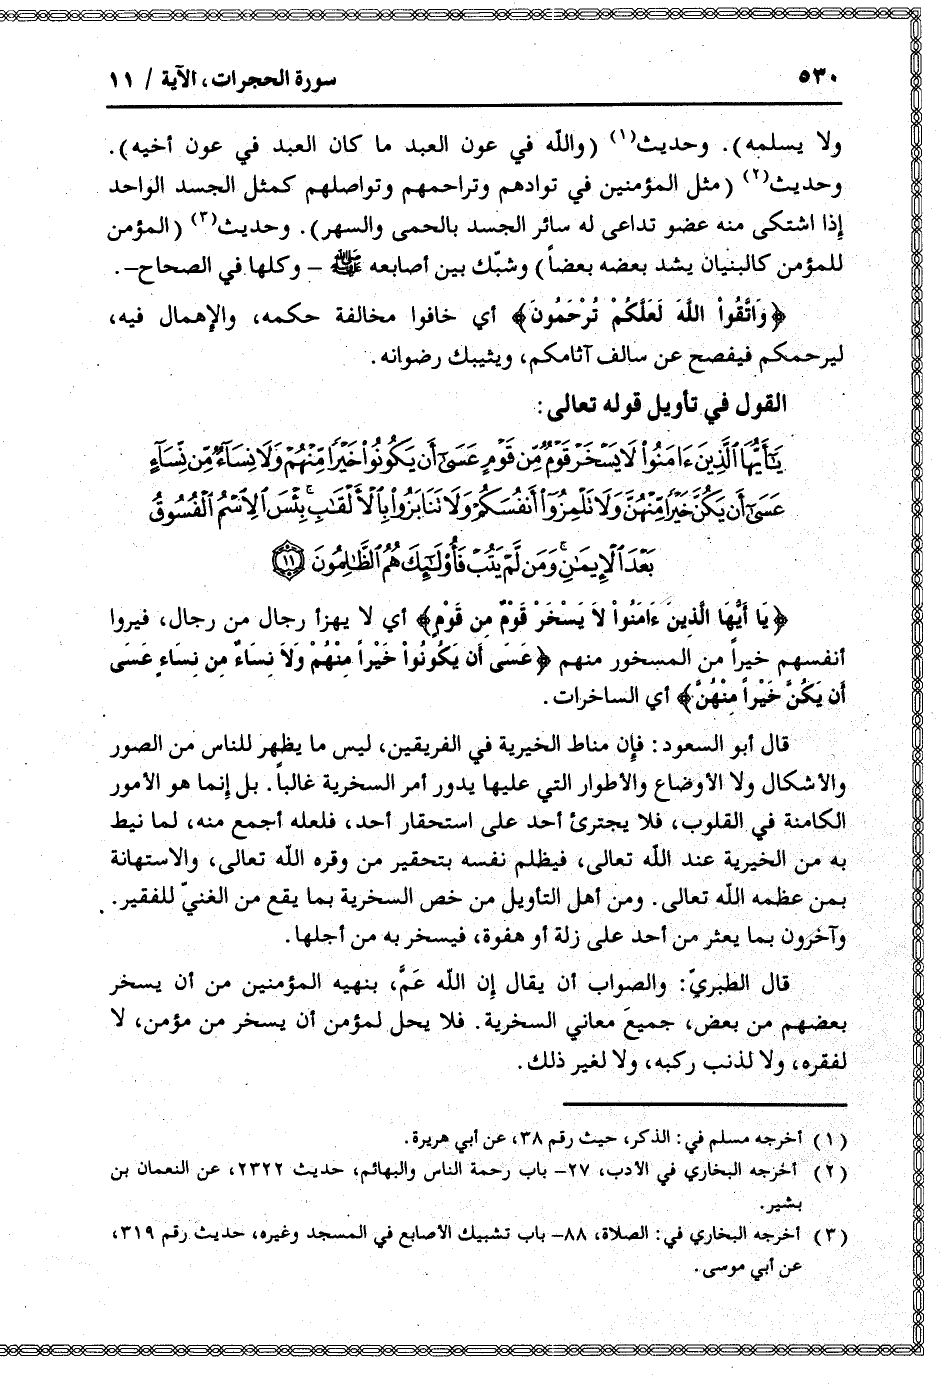 ٥٣٠
سورة الحجرات، الآية / ١١
ولا يسلمه). وحديث(١) (والله في عون العبد ما كان العبد في عون أخيه).
وحديث(٢) (مثل المؤمنين في توادهم وتراحمهم وتواصلهم كمثل الجسد الواحد
إذا اشتكى منه عضو تداعى له سائر الجسد بالحمى والسهر). وحديث(٣) (المؤمن
للمؤمن كالبنيان يشد بعضه بعضاً) وشبّك بين أصابعه ﷺ – وكلها في الصحاح–.
﴿وَاتَّقُواْ اللَّهَ لَعَلَّكُمْ تُرْحَمُونَ﴾ أي خافوا مخالفة حكمه، والإهمال فيه،
ليرحمكم فيفصح عن سالف آثامكم، ويثيبك رضوانه.
القول في تأويل قوله تعالى:
يَٰٓأَيُّهَا ٱلَّذِينَ ءَامَنُوا۟ لَا يَسْخَرْ قَوْمٌ مِّن قَوْمٍ عَسَىٰٓ أَن يَكُونُوا۟ خَيْرًا مِّنْهُمْ وَلَا نِسَآءٌ مِّن نِّسَآءٍ
عَسَىٰٓ أَن يَكُنَّ خَيْرًا مِّنْهُنَّ وَلَا تَلْمِزُوٓا۟ أَنفُسَكُمْ وَلَا تَنَابَزُوا۟ بِٱلْأَلْقَٰبِ ۖ بِئْسَ ٱلِٱسْمُ ٱلْفُسُوقُ
بَعْدَ ٱلْإِيمَٰنِ ۚ وَمَن لَّمْ يَتُبْ فَأُو۟لَٰٓئِكَ هُمُ ٱلظَّٰلِمُونَ ١١
﴿يَا أَيُّهَا الَّذِينَ ءَامَنُواْ لاَ يَسْخَرْ قَوْمٌ مِن قَوْمٍ﴾ أي لا يهزأ رجال من رجال، فيروا
أنفسهم خيراً من المسخور منهم ﴿عَسَى أَن يَكُونُواْ خَيْراً مِنْهُمْ وَلاَ نِسَاءٌ مِن نِسَاءٍ عَسَى
أَن يَكُنَّ خَيْراً مِنْهُنَّ﴾ أي الساخرات.
قال أبو السعود: فإن مناط الخيرية في الفريقين، ليس ما يظهر للناس من الصور
والأشكال ولا الأوضاع والأطوار التي عليها يدور أمر السخرية غالباً. بل إنما هو الأمور
الكامنة في القلوب، فلا يجترئ أحد على استحقار أحد، فلعله أجمع منه، لما نيط
به من الخيرية عند الله تعالى، فيظلم نفسه بتحقير من وقره الله تعالى، والاستهانة
بمن عظمه الله تعالى. ومن أهل التأويل من خص السخرية بما يقع من الغنيّ للفقير.
وآخرون بما يعثر من أحد على زلة أو هفوة، فيسخر به من أجلها.
قال الطبريّ: والصواب أن يقال إن الله عَمَّ، بنهيه المؤمنين من أن يسخر
بعضهم من بعض، جميعَ معاني السخرية. فلا يحل لمؤمن أن يسخر من مؤمن، لا
لفقره، ولا لذنب ركبه، ولا لغير ذلك.
(١) أخرجه مسلم في: الذكر، حيث رقم ٣٨، عن أبي هريرة.
(٢) أخرجه البخاري في الأدب، ٢٧– باب رحمة الناس والبهائم، حديث ٢٣٢٢، عن النعمان بن
بشير.
(٣) أخرجه البخاري في: الصلاة، ٨٨– باب تشبيك الأصابع في المسجد وغيره، حديث رقم ٣١٩،
عن أبي موسى.